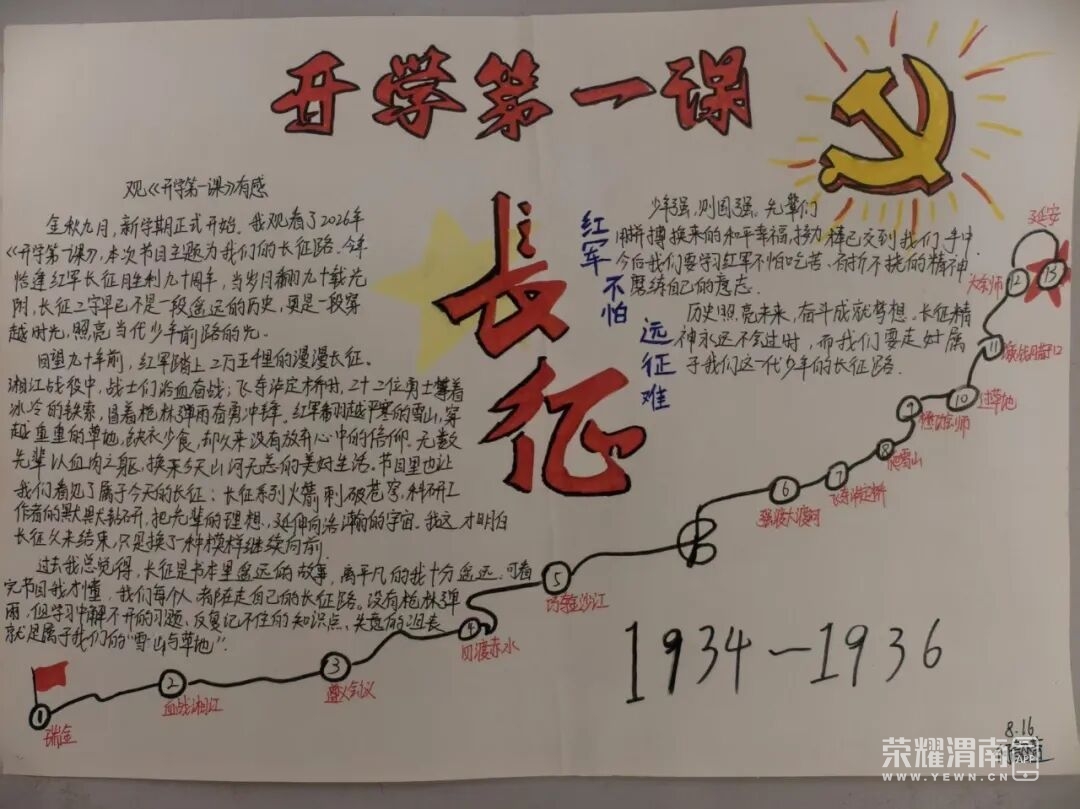 开学第一课
观《开学第一课》有感
金秋九月，新学期正式开始。我观看了2026年
《开学第一课》，本次节目主题为我们的长征路。今年
恰逢红军长征胜利九十周年，当岁月翻九十载光
阴，长征二字早已不是一段遥远的历史，更是一段穿
越时光，照亮当代少年前路的光。
回望九十年前，红军踏上2万五千里的漫漫长征。
湘江战役中，战士们浴血奋战；飞夺泸定桥时，22位勇士攀着
冰冷的铁索，冒着枪林弹雨奋勇冲锋。红军翻越严寒的雪山，穿
越重重的草地，缺衣少食，却从来没有放弃心中的信仰。无数
先辈以血肉之躯，换来今天山河无恙的美好生活。节目里也让
我们看见了属于今天的长征；长征系列火箭刺破苍穹，科研工
作者的默默钻研，把先辈的理想，延伸向浩瀚的宇宙。我这才明白
长征从未结束，只是换了一种模样继续向前
过去我总觉得，长征是书本里遥远的故事，离平凡的我十分遥远。可看
完节目我才懂，我们每个人都在走自己的长征路。没有枪林弹
雨，但学习中解不开的习题、反复记不住的知识点、失落的沮丧
就是属于我们的“雪山与草地”.
长征
红军不怕
远征难
少年强，则国强。先辈们
用拼搏换来的和平幸福，接力棒已交到我们手中.
今后我们要学习红军不怕吃苦、百折不挠的精神
磨练自己的意志.
历史照亮未来，奋斗成就梦想。长征精
神永远不会过时，而我们要走好属
于我们这一代少年的长征路.
延安
13
12
大会师
11
10
过草地
9
8
爬雪山
7
飞夺泸定桥
6
强渡大渡河
5
巧夺金沙江
4
四渡赤水
3
遵义会议
2
血战湘江
1
瑞金
1934—1936
8.16
荣耀渭南
APP
WWW.YEWN.CN